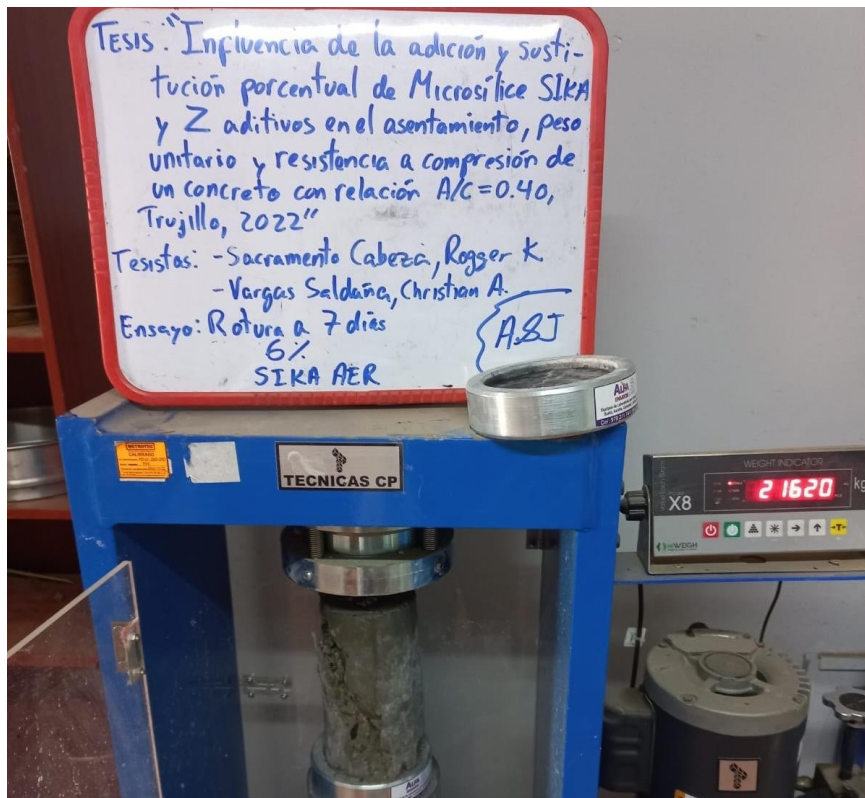 TESIS: "Influencia de la adición y susti-
tución porcentual de Microsílice SIKA
y Z aditivos en el asentamiento, peso
unitario y resistencia a compresión de
un concreto con relación A/C=0.40,
Trujillo, 2022"
Tesistas: -Sacramento Cabeza, Rogger K.
-Vargas Saldaña, Christian A.
Ensayo: Rotura a 7 días
6%
SIKA AER
A&J
ALFA
CALIBRADO
TECNICAS CP
WEIGHT INDICATOR
21620 kg
X8
ALFA